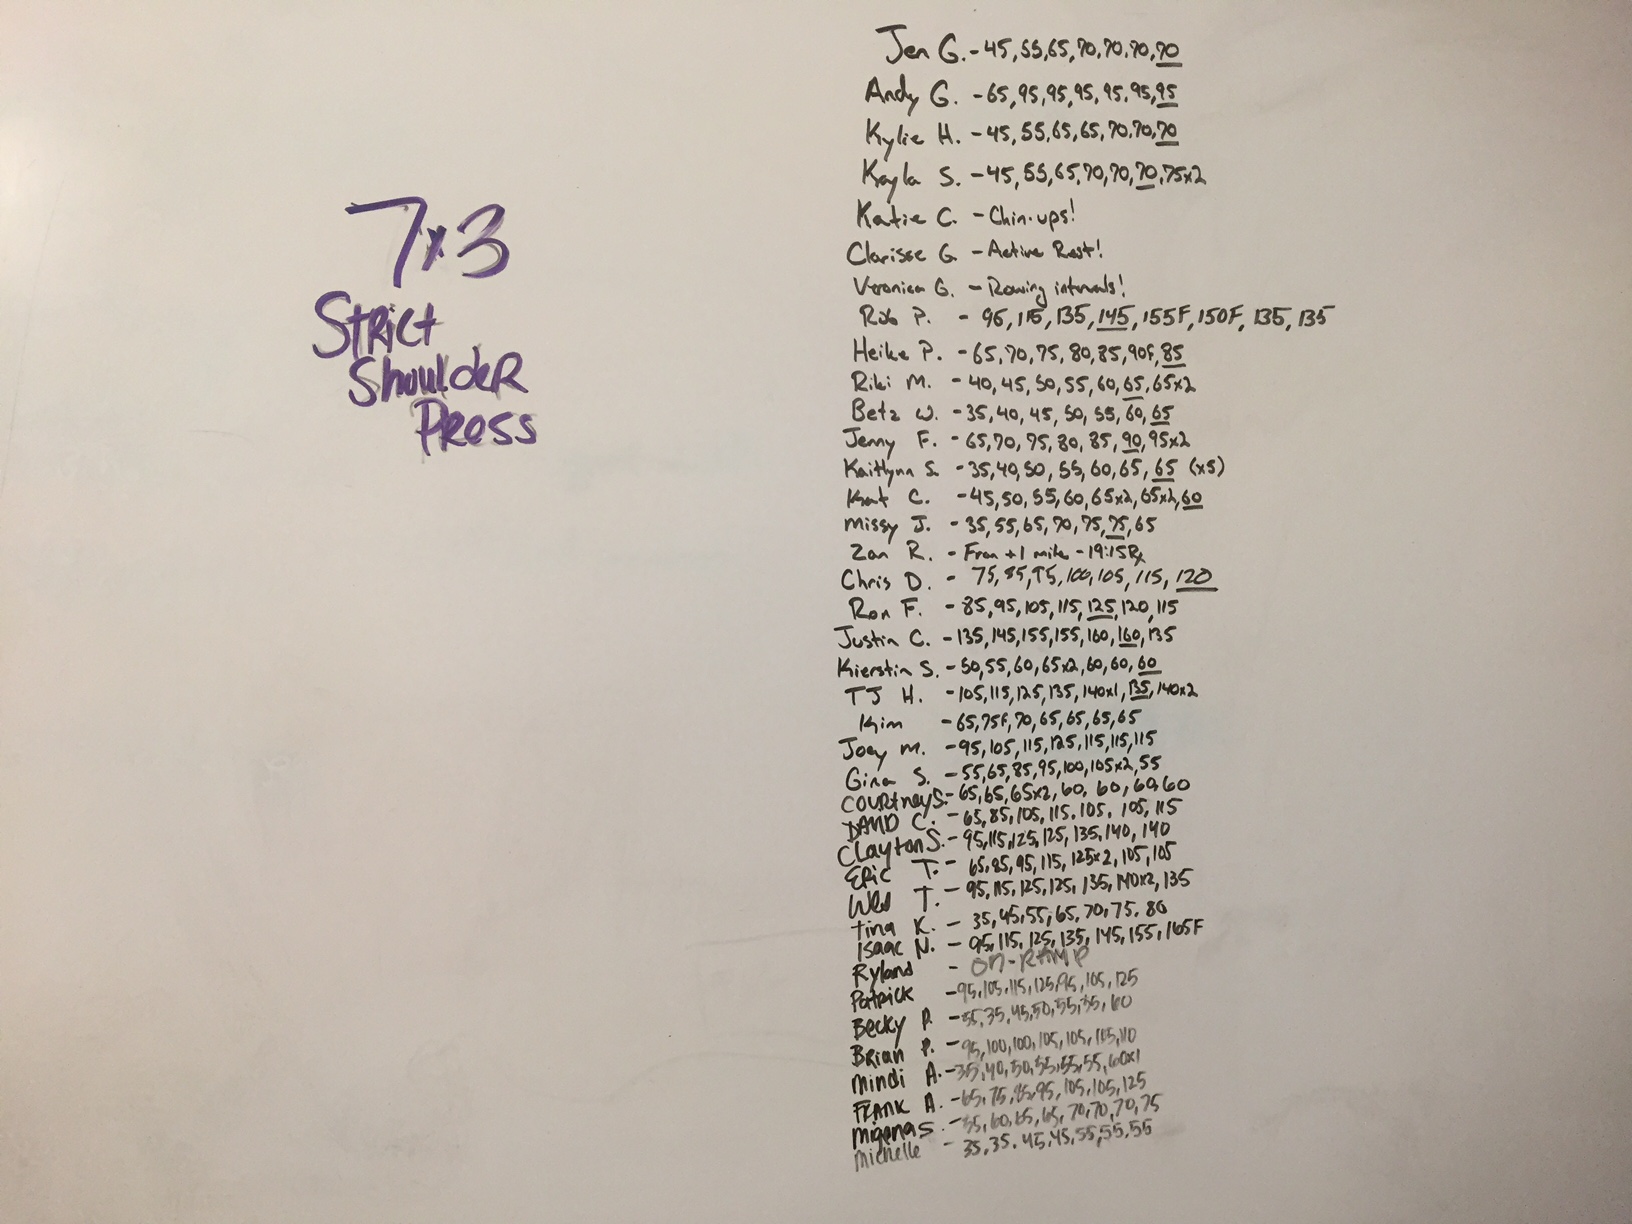 7x3
Strict
Shoulder
Press
Jen G. - 45, 55, 65, 70, 70, 70, 70
Andy G. - 65, 95, 95, 95, 95, 95, 95
Kylie H. - 45, 55, 65, 65, 70, 70, 70
Kayla S. - 45, 55, 65, 70, 70, 70, 75x2
Katie C. - Chin-ups!
Clarisse G - Active Rest!
Veronica G. - Rowing intervals!
Rob P. - 95, 115, 135, 145, 155F, 150F, 135, 135
Heike P. - 65, 70, 75, 80, 85, 90F, 85
Riki M. - 40, 45, 50, 55, 60, 65, 65x2
Betz W. - 35, 40, 45, 50, 55, 60, 65
Jenny F. - 65, 70, 75, 80, 85, 90, 95x2
Kaitlynn S. - 35, 40, 50, 55, 60, 65, 65 (x5)
Kat C. - 45, 50, 55, 60, 65x2, 65x2, 60
Missy J. - 35, 55, 65, 70, 75, 75, 65
Zan R. - Fran + 1 mile - 19:15 Rx
Chris D. - 75, 85, 95, 100, 105, 115, 120
Ron F. - 85, 95, 105, 115, 125, 120, 115
Justin C. - 135, 145, 155, 155, 160, 160, 135
Kierstin S. - 50, 55, 60, 65x2, 60, 60, 60
TJ H. - 105, 115, 125, 135, 140x1, 135, 140x2
Kim - 65, 75F, 70, 65, 65, 65, 65
Joey M. - 95, 105, 115, 125, 115, 115, 115
Gina S. - 55, 65, 85, 95, 100, 105x2, 55
Courtney S. - 65, 65, 65x2, 60, 60, 60, 60
David C. - 65, 85, 105, 115, 105, 105, 115
Clayton S. - 95, 115, 125, 125, 135, 140, 140
Eric T. - 65, 85, 95, 115, 125x2, 105, 105
Wes T. - 95, 115, 125, 125, 135, 140x2, 135
Tina K. - 35, 45, 55, 65, 70, 75, 80
Isaac N. - 95, 115, 125, 135, 145, 155, 165F
Ryland - ON-RAMP
Patrick - 95, 105, 115, 125, 95, 105, 125
Becky P. - 35, 45, 50, 55, 35, 60
Brian P. - 95, 100, 100, 105, 105, 115, 110
Mindi A. - 35, 40, 50, 55, 55, 55, 60x1
Frank A. - 65, 75, 85, 95, 105, 105, 125
Migena S. - 55, 60, 65, 65, 70, 70, 70, 75
Michelle - 35, 35, 45, 45, 55, 55, 55